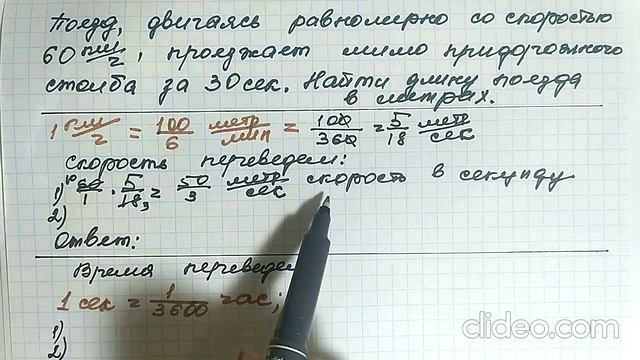 Поезд, двигаясь равномерно со скоростью
60 км/ч, проезжает мимо придорожного
столба за 30 сек. Найти длину поезда
в метрах.
1 км/ч = 100/6 метр/мин = 100/360 = 5/18 метр/сек
Скорость переведем:
1) 60/1 · 5/18 = 50/3 метр/сек скорость в секунду
2)
Ответ:
Время переведе
1 сек = 1/3600 час;
1)
2)
clideo.com